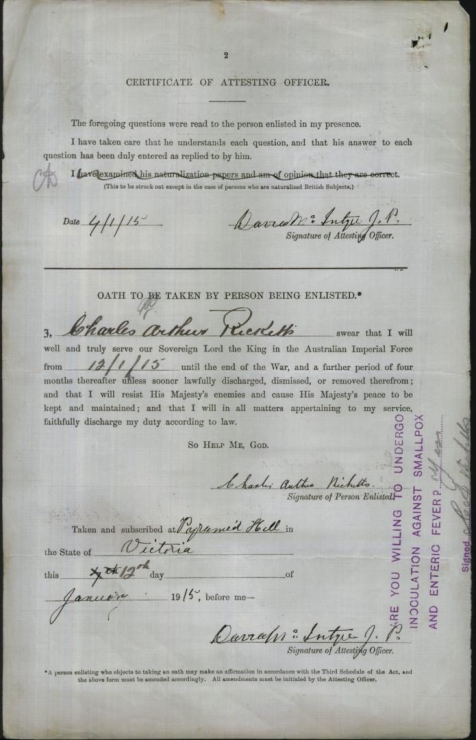 2
CERTIFICATE OF ATTESTING OFFICER.
The foregoing questions were read to the person enlisted in my presence.
I have taken care that he understands each question, and that his answer to each
question has been duly entered as replied to by him.
I have examined his naturalization papers and am of opinion that they are correct.
(This to be struck out except in the case of persons who are naturalized British Subjects.)
Date 4/1/15
David McIntyre J.P.
Signature of Attesting Officer.
OATH TO BE TAKEN BY PERSON BEING ENLISTED.*
3. Charles Arthur Ricketts swear that I will
well and truly serve our Sovereign Lord the King in the Australian Imperial Force
from 12/1/15 until the end of the War, and a further period of four
months thereafter unless sooner lawfully discharged, dismissed, or removed therefrom;
and that I will resist His Majesty's enemies and cause His Majesty's peace to be
kept and maintained; and that I will in all matters appertaining to my service,
faithfully discharge my duty according to law.
SO HELP ME, GOD.
Charles Arthur Ricketts
Signature of Person Enlisted.
Taken and subscribed at Pyramid Hill in
the State of Victoria
this 12th day of
January 1915, before me—
David McIntyre J.P.
Signature of Attesting Officer.
*A person enlisting who objects to taking an oath may make an affirmation in accordance with the Third Schedule of the Act, and
the above form must be amended accordingly. All amendments must be initialed by the Attesting Officer.
ARE YOU WILLING TO UNDERGO
INOCULATION AGAINST SMALLPOX
AND ENTERIC FEVER? Yes
Signed